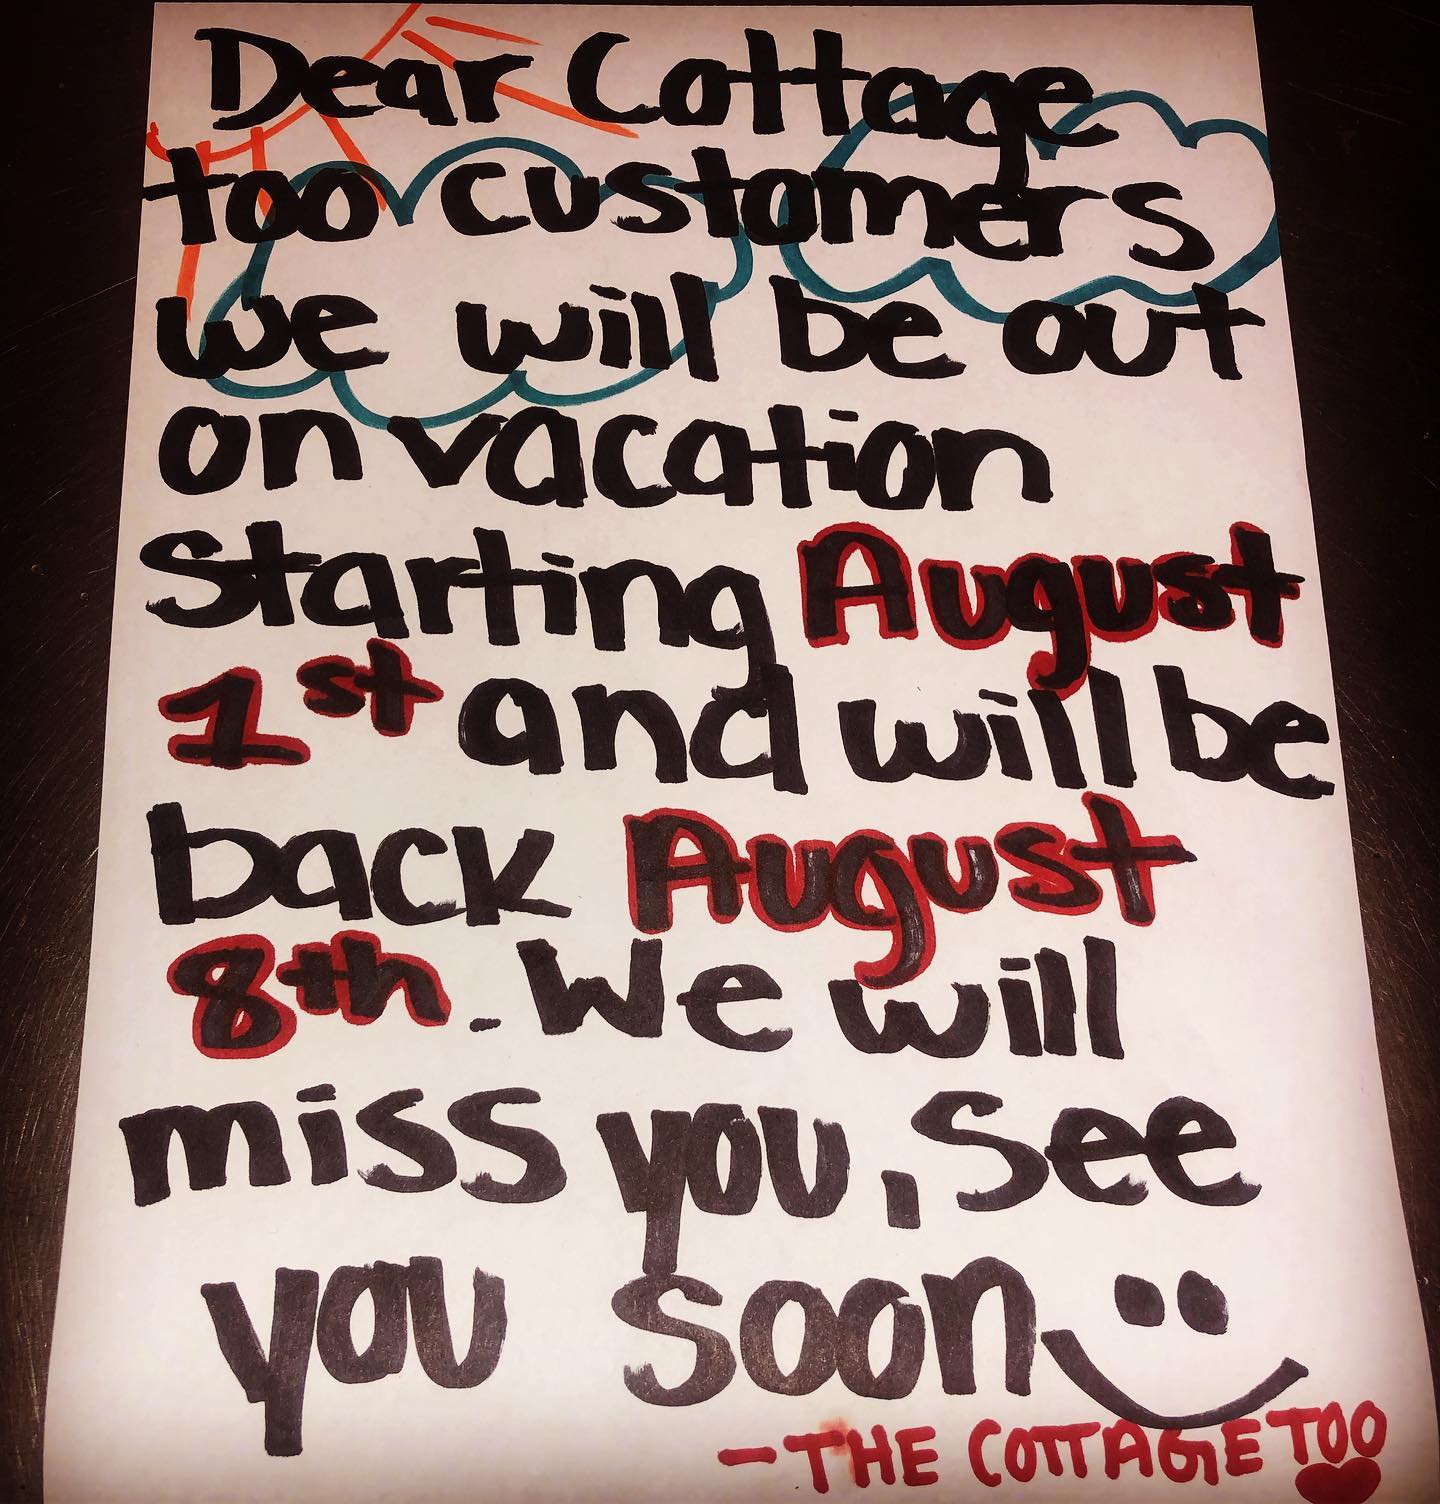 Dear Cottage
too customers
we will be out
on vacation
Starting August
1st and will be
back August
8th. We will
miss you, See
you soon
-THE COTTAGE TOO